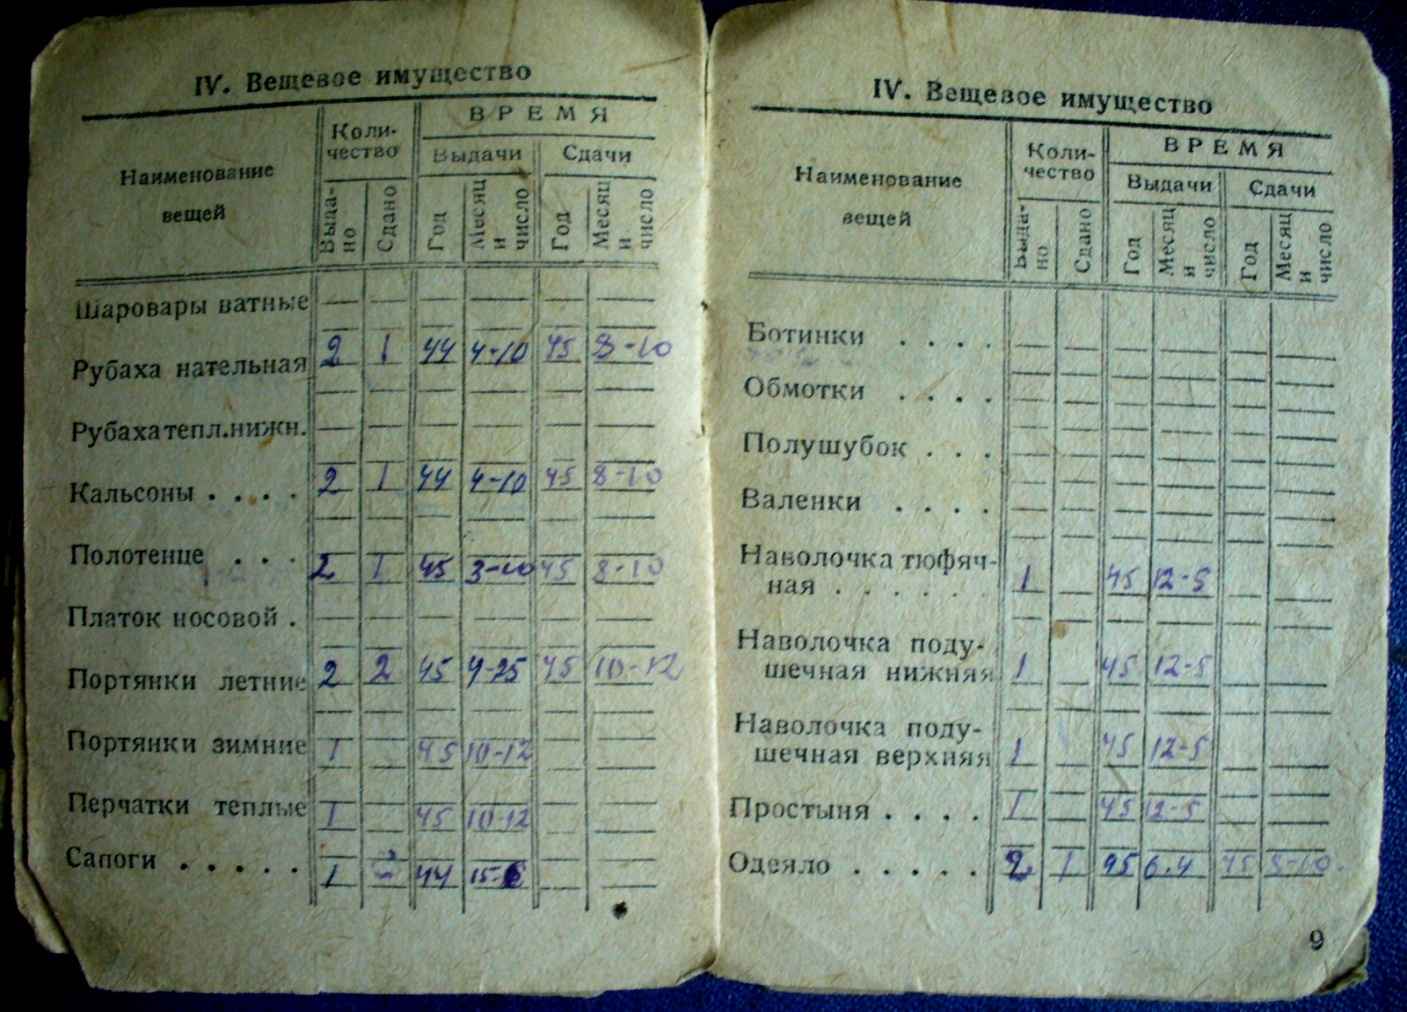 IV. Вещевое имущество
Наименование вещей Коли-чество ВРЕМЯ
Выдачи Сдачи
Выда-но Сдано Год Месяц и число Год Месяц и число
Шаровары ватные
Рубаха нательная 2 1 44 4-10 45 8-10
Рубаха тепл. нижн.
Кальсоны . . . . 2 1 44 4-10 45 8-10
Полотенце . . . 2 1 45 3-10 45 8-10
Платок носовой .
Портянки летние 2 2 45 4-25 45 10-12
Портянки зимние 1 45 10-12
Перчатки теплые 1 45 10-12
Сапоги . . . . . 1 44
IV. Вещевое имущество
Наименование вещей Коли-чество ВРЕМЯ
Выдачи Сдачи
Выда-но Сдано Год Месяц и число Год Месяц и число
Ботинки . . . .
Обмотки . . . .
Полушубок . . .
Валенки . . . .
Наволочка тюфяч-
ная . . . . . . 1 45 12-5
Наволочка поду-
шечная нижняя 1 45 12-5
Наволочка поду-
шечная верхняя 1 45 12-5
Простыня . . . . 1 45 12-5
Одеяло . . . . . 2 1 45 6.4 45 8-10.
9